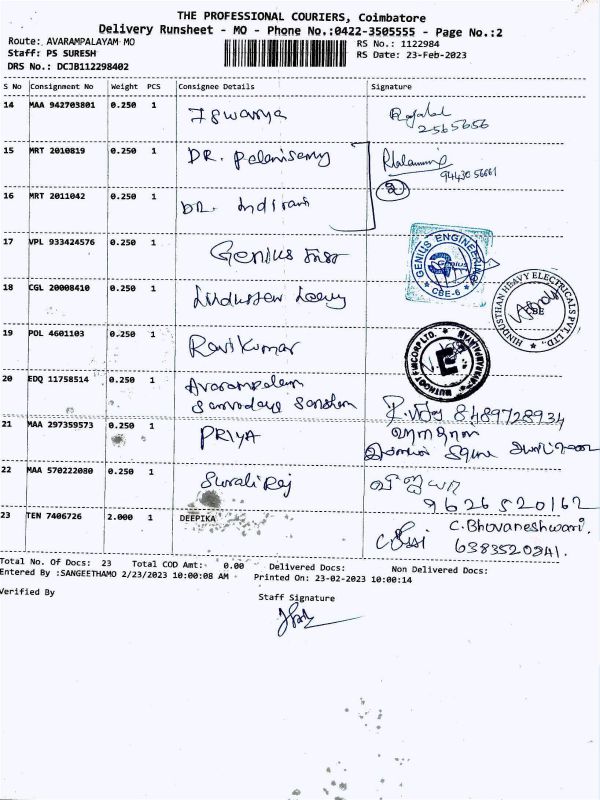 THE PROFESSIONAL COURIERS, Coimbatore
Delivery Runsheet - MO - Phone No.:0422-3505555 - Page No.:2
Route: AVARAMPALAYAM MO
RS No.: 1122984
Staff: PS SURESH
RS Date: 23-Feb-2023
DRS No.: DCJB112298402
S No Consignment No Weight PCS Consignee Details Signature
14 MAA 942703801 0.250 1 Iswarya
2565656
15 MRT 2010819 0.250 1 DR. Palanisamy
94430 56661
2
16 MRT 2011042 0.250 1 DR. Indirani
17 VPL 933424576 0.250 1 Genius
GENIUS ENGINEERING
CBE-6
18 CGL 20008410 0.250 1
HINDUSTHAN HEAVY ELECTRICALS PVT. LTD.,
CBE
19 POL 4601103 0.250 1 Ravikumar
MUTHOOT FINCORP LTD.
20 EDQ 11758514 0.250 1 Avarampalem
8489728934
21 MAA 297359573 0.250 1 PRIYA
22 MAA 570222080 0.250 1
9626520162
23 TEN 7406726 2.000 1 DEEPIKA
C.Bhuvaneshwari.
6383520941.
Total No. Of Docs: 23 Total COD Amt: 0.00 Delivered Docs: Non Delivered Docs:
Entered By :SANGEETHAMO 2/23/2023 10:00:08 AM Printed On: 23-02-2023 10:00:14
Verified By
Staff Signature